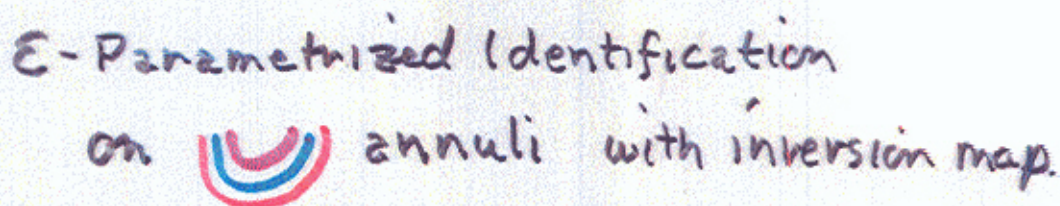 ε-Parametrized Identification
on annuli with inversion map.